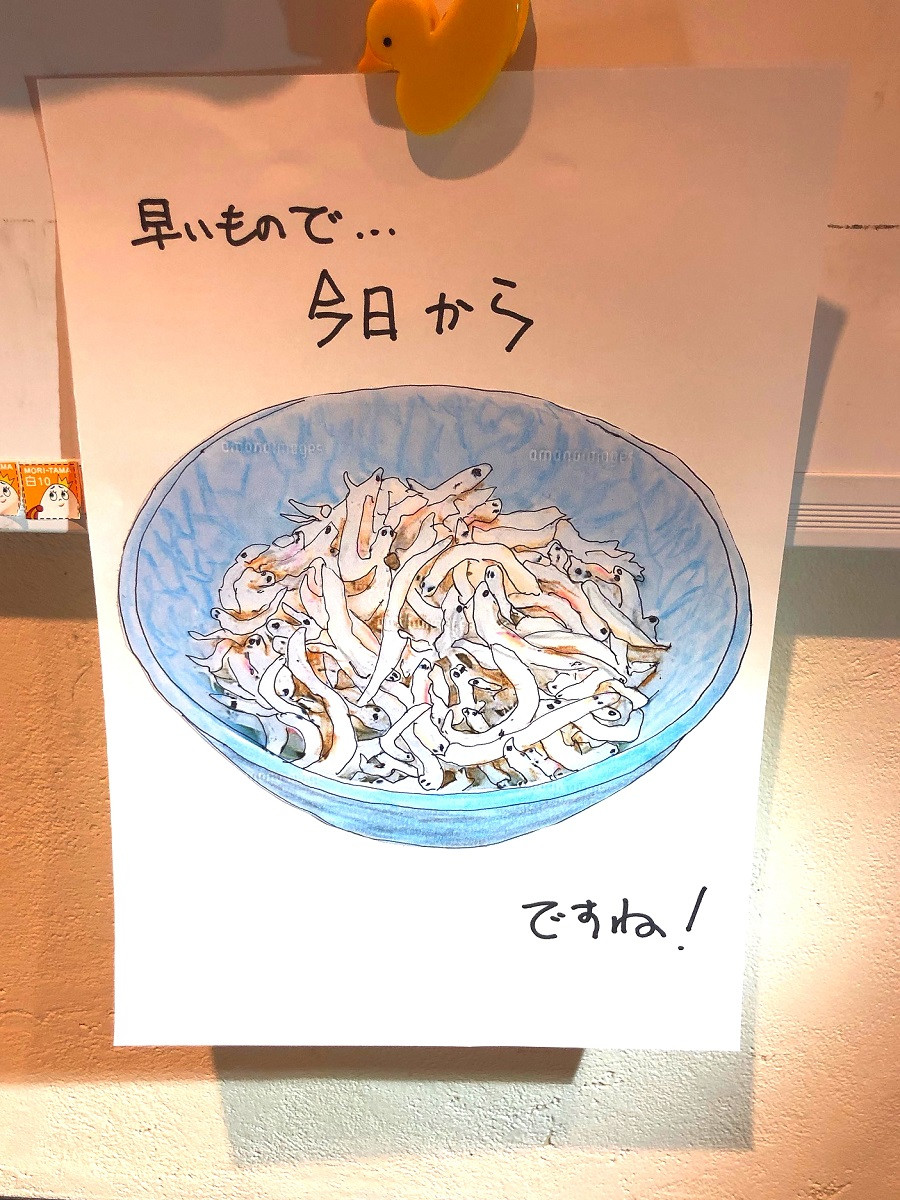 早いもので...
今日から
amanaimages
amanaimages
ですね!
MA
MORI-TAMA
白10